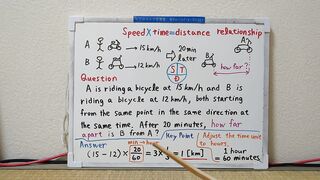 Speed × time = distance relationship
A → 15km/h → 20min later
B → 12km/h
how far?
S T D
Question
A is riding a bicycle at 15km/h and B is
riding a bicycle at 12km/h, both starting
from the same point in the same direction
at the same time. After 20 minutes, how far
apart is B from A?
Key Point / Adjust the time unit to hours
Answer
min → hour
(15-12)× 20/60 = 3× = 1 [km]
1 hour = 60 minutes